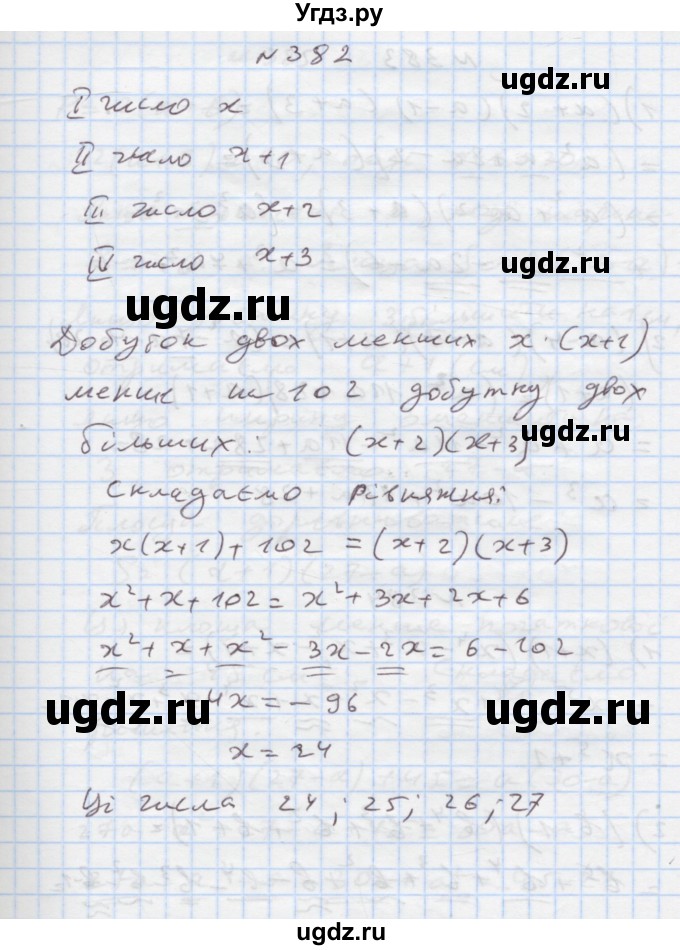 Угдз.ру
№382
ugdz.ru
I число x
II число x+1
III число x+2
IV число x+3
ugdz.ru ugdz.ru
Добуток двох менших x·(x+1)
менше на 102 добутку двох
більших: (x+2)(x+3) ugdz.ru
Складаємо рівняння:
x(x+1)+102=(x+2)(x+3)
x²+x+102=x²+3x+2x+6
x²+x+x²-3x-2x=6-102
ugdz.ru 4x=-96 ugdz.ru
x=24
Ці числа 24; 25; 26; 27
ugdz.ru ugdz.ru